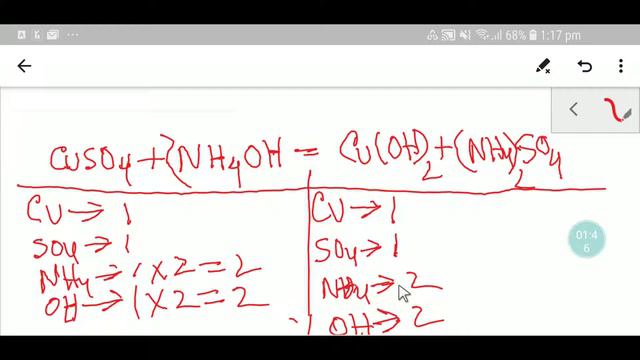 68% 1:17 pm
CuSO4 + 2NH4OH = Cu(OH)2 + (NH4)2SO4
CU → 1 CU → 1
SO4 → 1 SO4 → 1
01:46
NH4 → 1 X 2 = 2 NH4 → 2
OH → 1 X 2 = 2 OH → 2